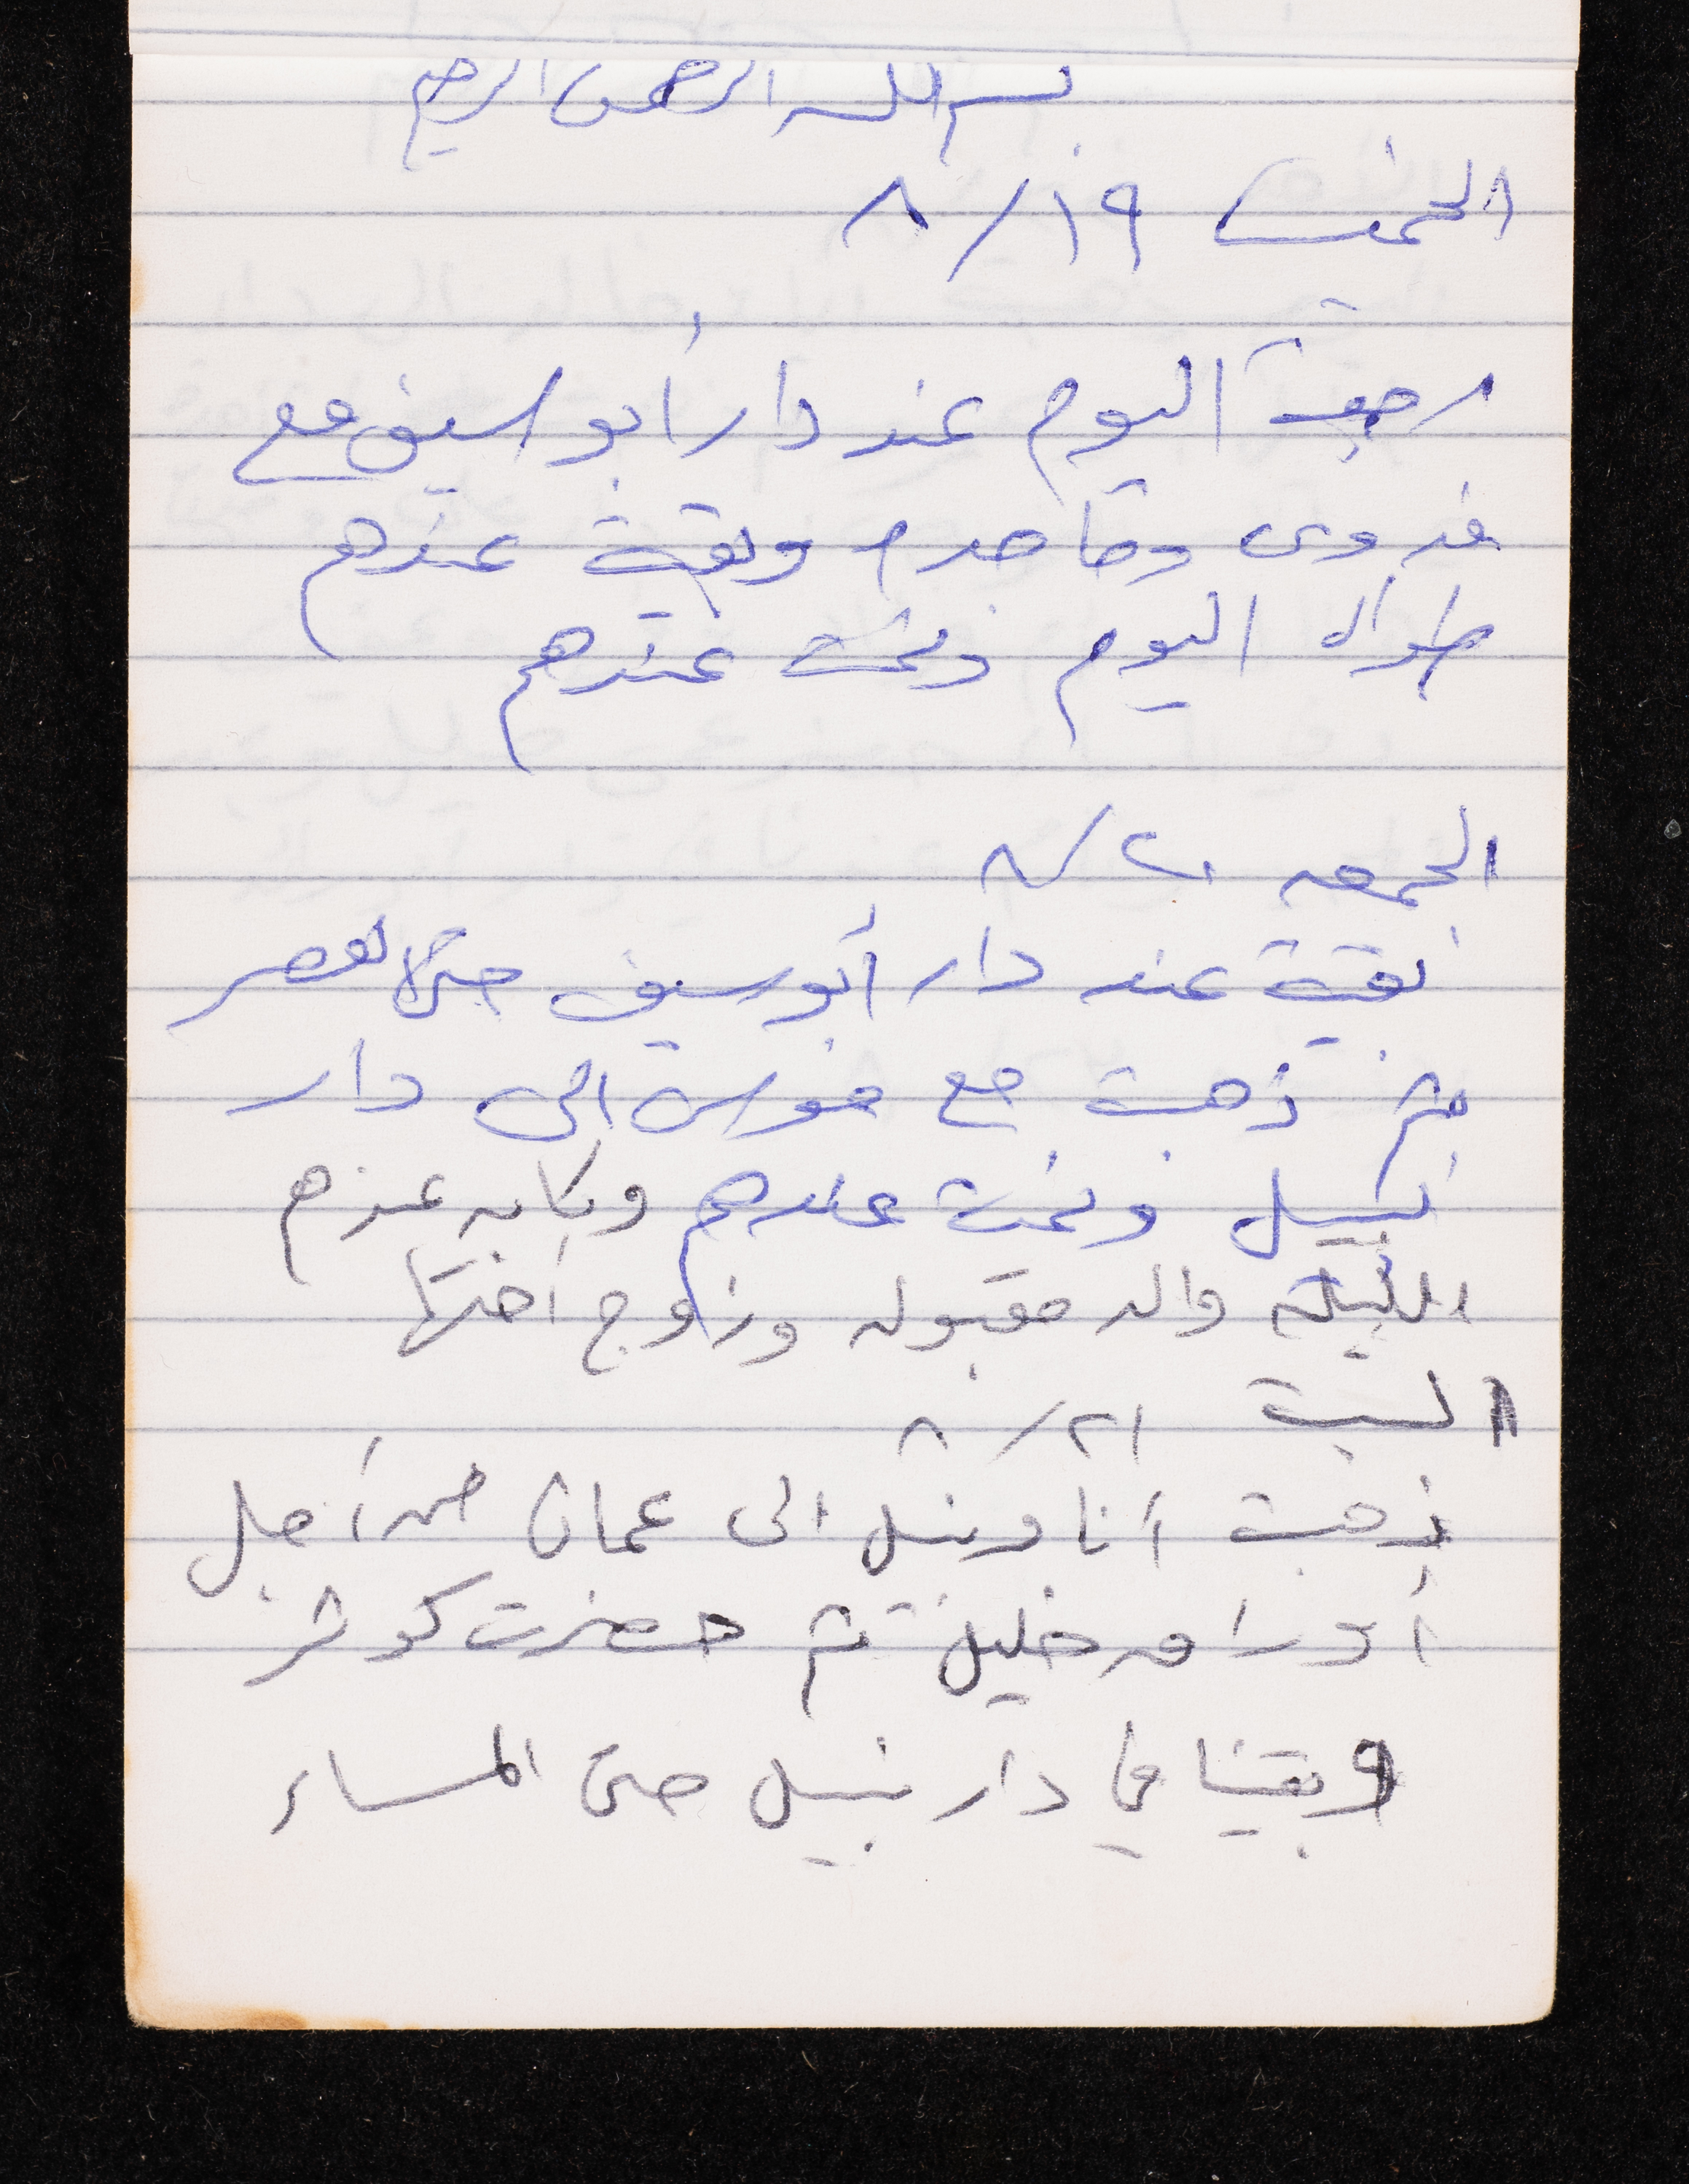 بسم الله الرحمن الرحيم
الخميس ١٩/٨
رجعت اليوم عند دار أبو سيف مع
فدوى وماجده وبقية عندهم
طوال اليوم ونمت عندهم
الجمعه ٢٠/٨
بقية عند دار أبو سيف حتى العصر
ثم ذهبت مع موسى الى دار
نبيل ونمت عندهم وكان عندهم
الليلة والد مقبوله وزوج اختها
السبت ٢١/٨
ذهبت أنا ونبيل الى عمان من أجل
أوراق خليل ثم حضرت كوثر
وبقينا في دار نبيل حتى المساء